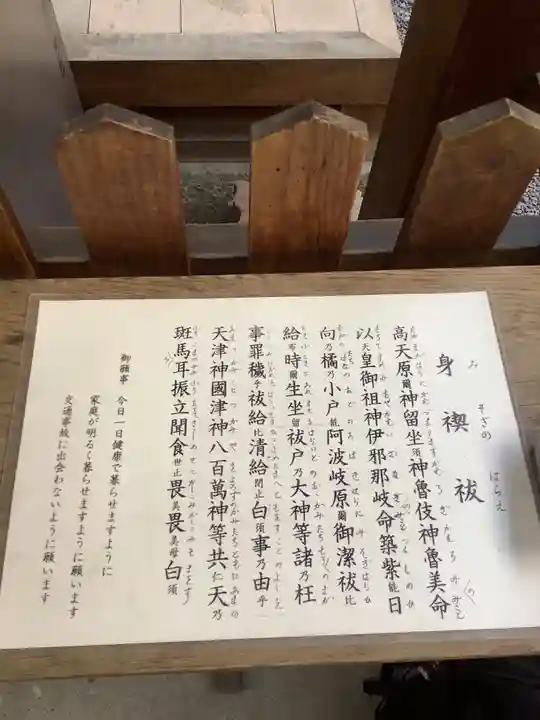 身禊祓
みそぎのはらえ
高天原爾神留坐須神魯伎神魯美命
以天皇御祖神伊邪那岐命築紫能日
向乃橘乃小戸能阿波岐原爾御潔祓比
給布時爾生坐留祓戸乃大神等諸乃枉
事罪穢乎祓給比清給閉止白須事乃由乎
天津神國津神八百萬神等共仁天乃
斑馬耳振立聞食世止畏美畏美母白須
御願事　今日一日健康で暮らせますように
家庭が明るく暮らせますように願います
交通事故に出会わないように願います